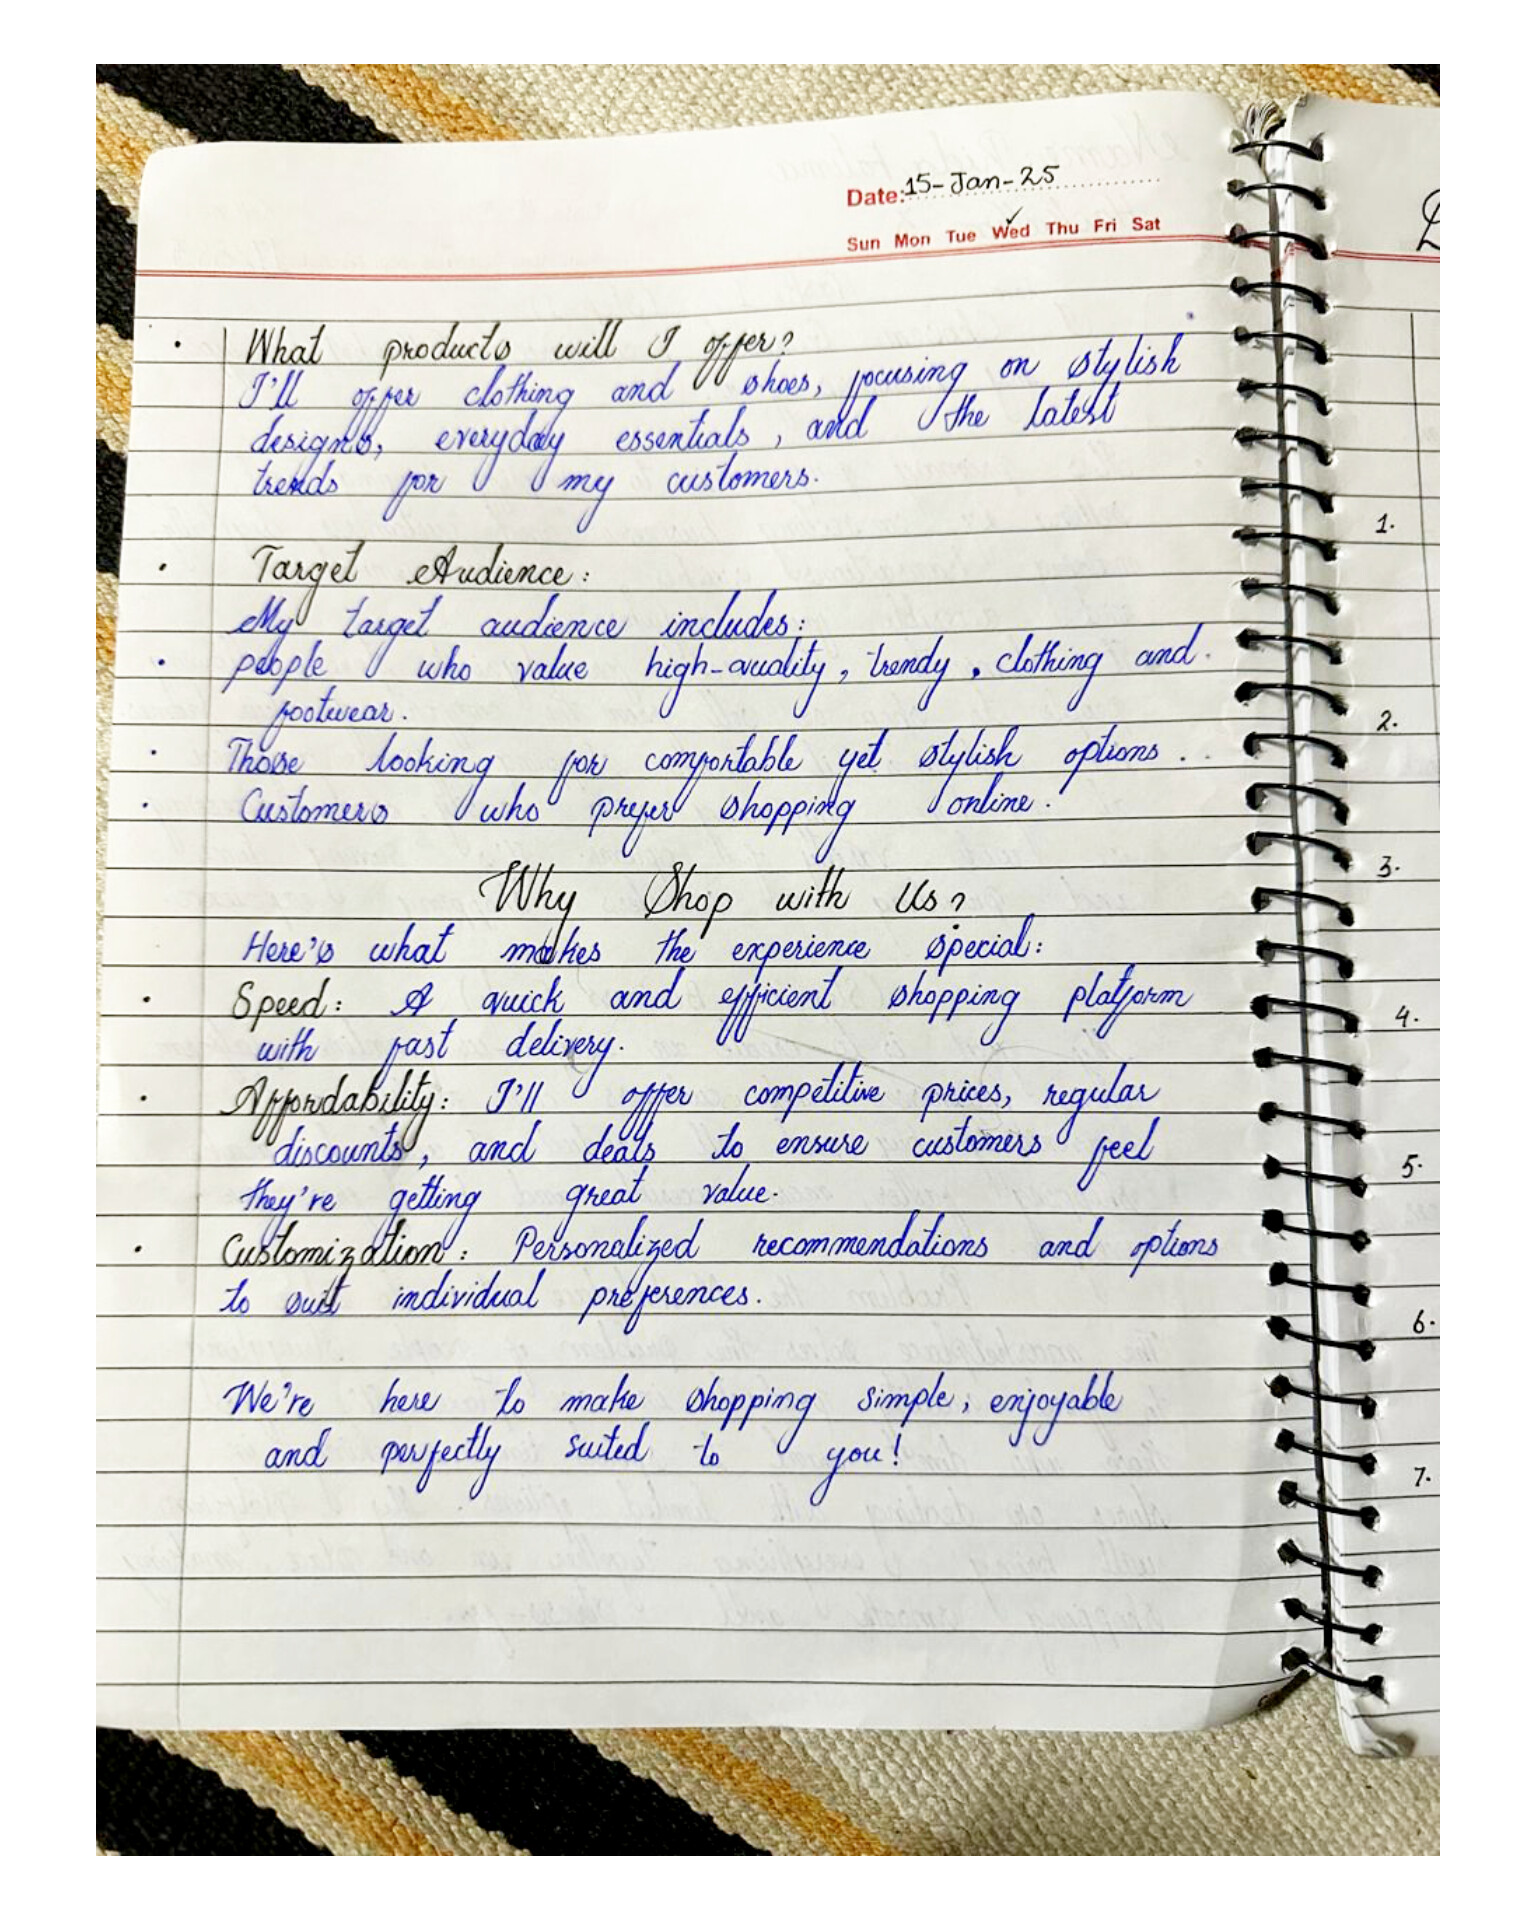 Date: 15-Jan-25
Sun Mon Tue Wed Thu Fri Sat
• What products will I offer?
I'll offer clothing and shoes, focusing on stylish
designs, everyday essentials, and the latest
trends for my customers.
• Target Audience:
My target audience includes:
• people who value high-quality, trendy, clothing and
footwear.
• Those looking for comfortable yet stylish options.
• Customers who prefer shopping online.
Why Shop with Us?
Here's what makes the experience special:
• Speed: A quick and efficient shopping platform
with fast delivery.
• Affordability: I'll offer competitive prices, regular
discounts, and deals to ensure customers feel
they're getting great value.
• Customization: Personalized recommendations and options
to suit individual preferences.
We're here to make shopping simple, enjoyable
and perfectly suited to you!
1.
2.
3.
4.
5.
6.
7.